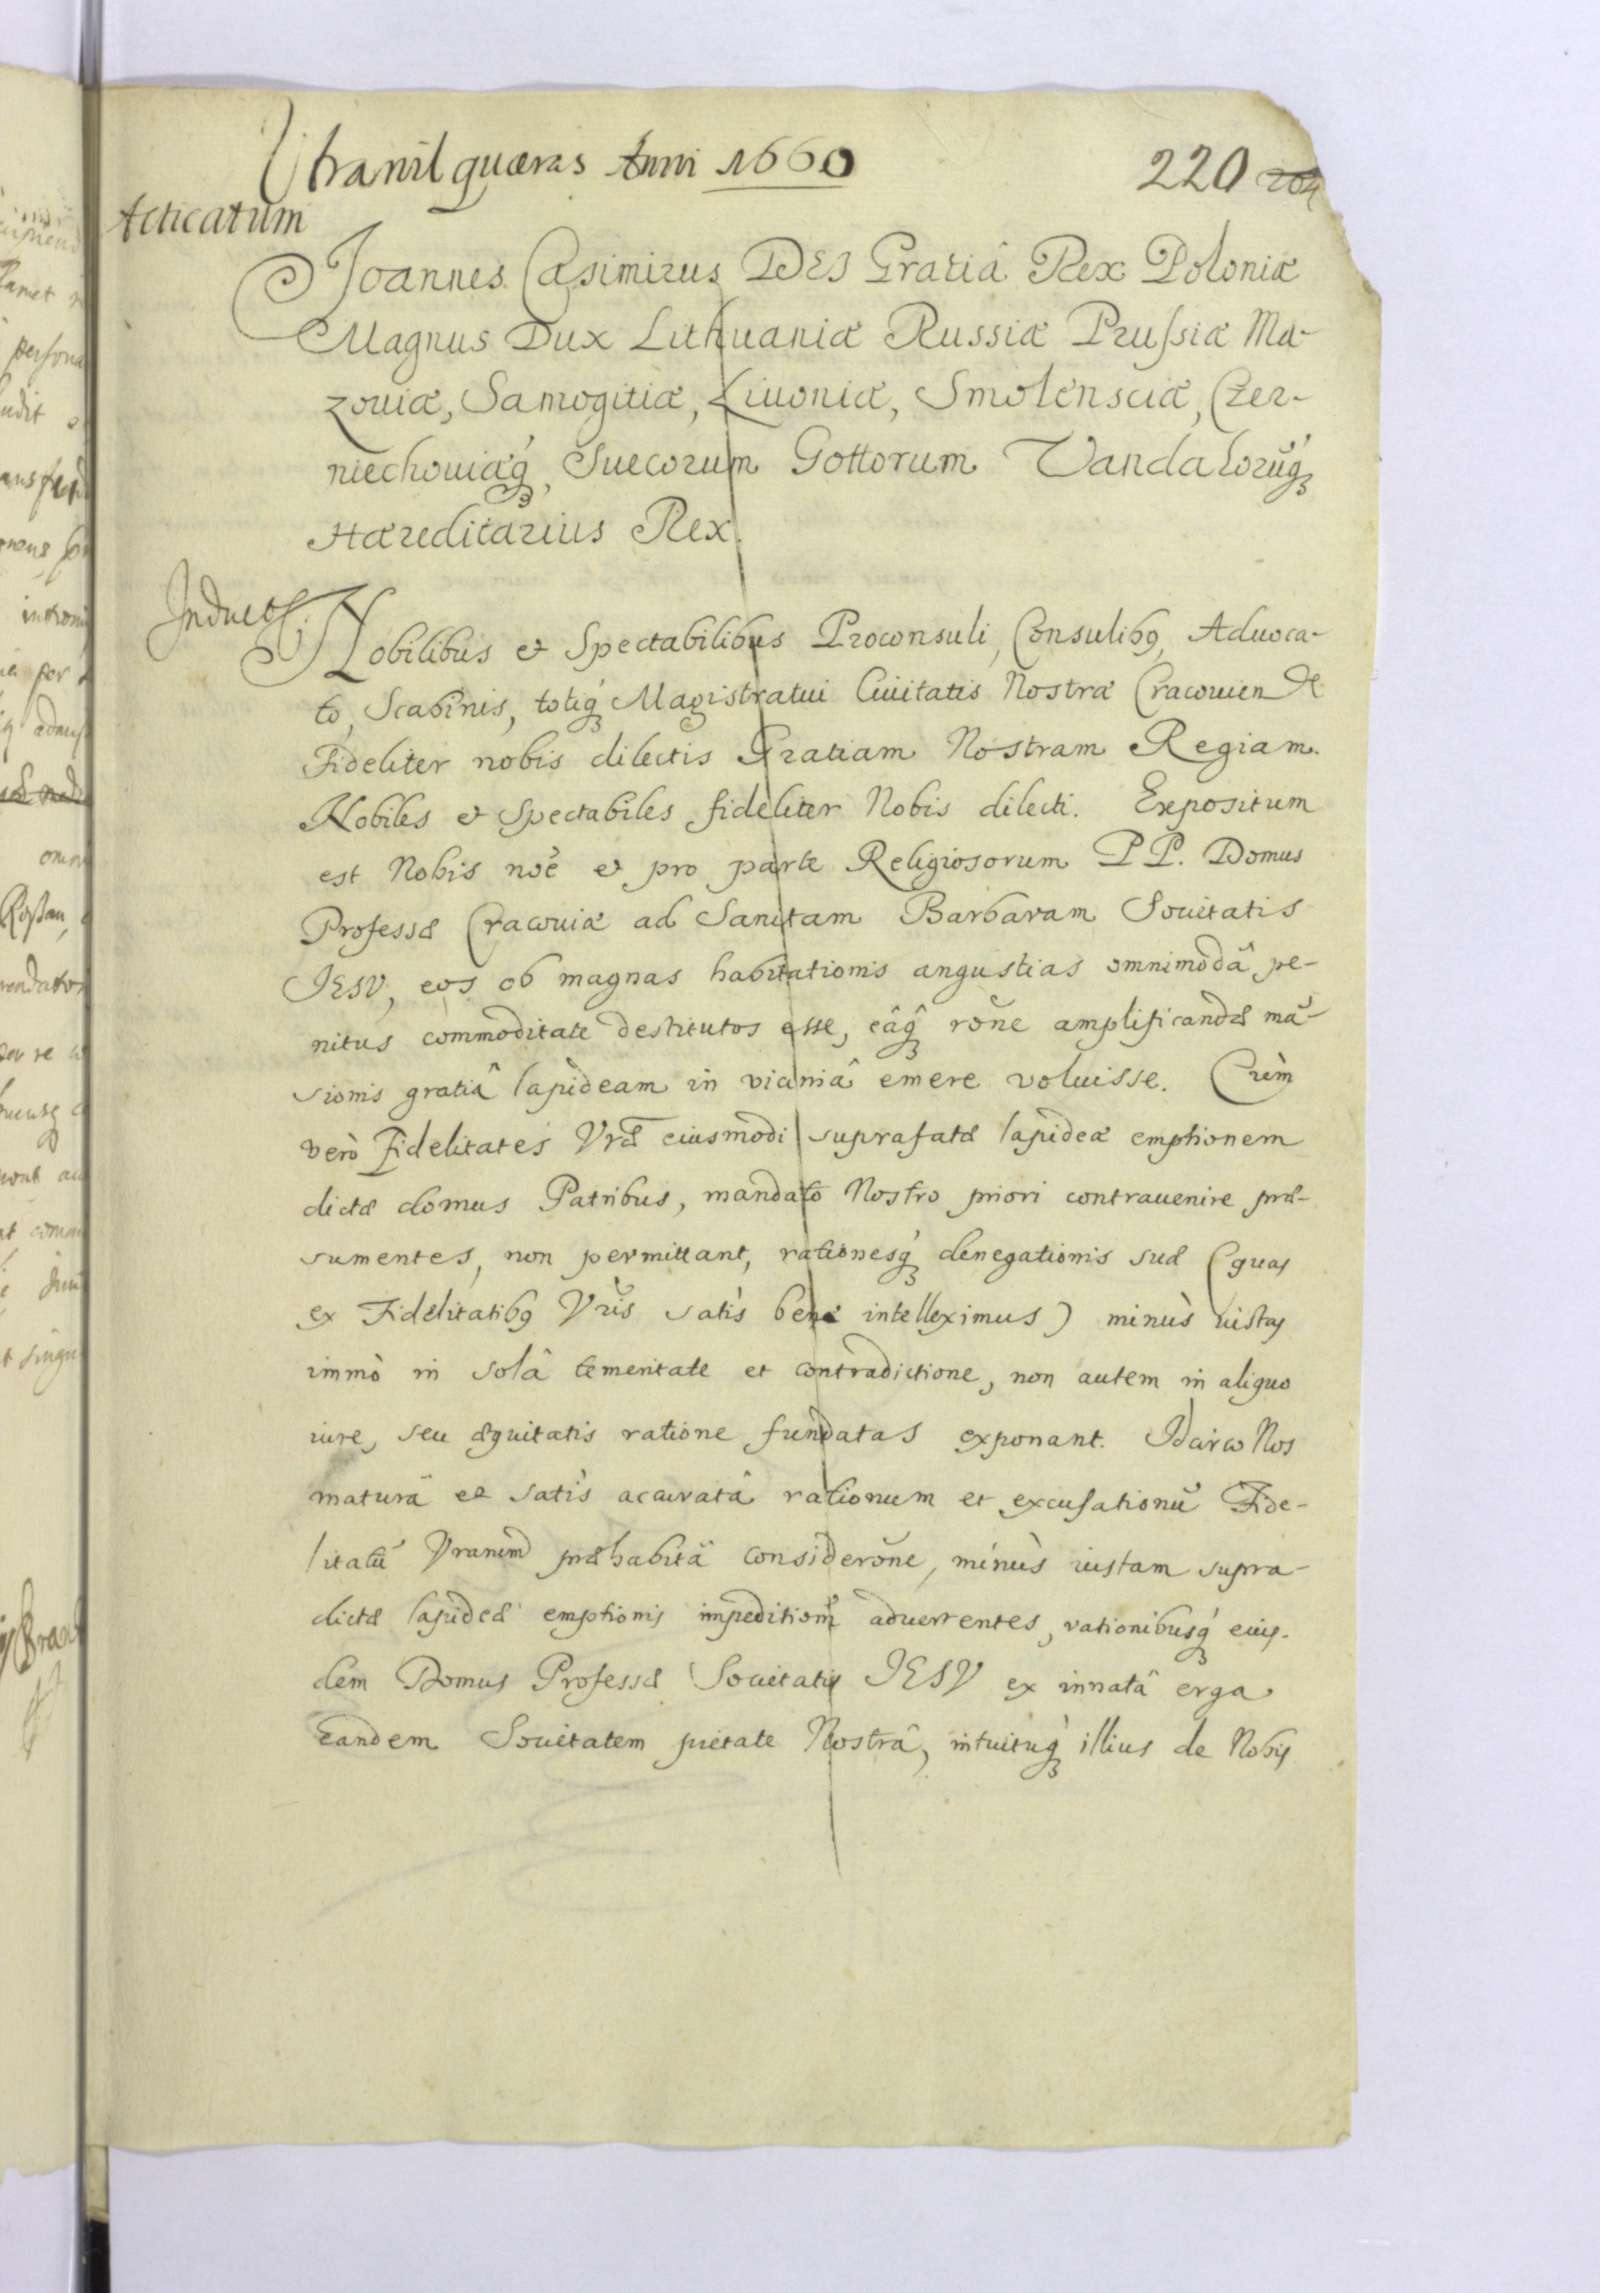 quæras Anni 1660
220 204
Acticatum
Joannes Casimirus DEI Gratiâ Rex Poloniæ
Magnus Dux Lithuaniæ Russiæ Prussiæ Ma-
zouiæ, Samogitiæ, Liuoniæ, Smolensciæ, Czer-
niechouiæq́, Suecorum Gottorum Vandalorūq́
Hæreditarius Rex.
Induct.
Nobilibus et Spectabilibus Proconsuli, Consulibꝰ, Aduoca-
to, Scabinis, totiq́ Magistratui Ciuitatis Nostræ Cracouien
Fideliter nobis dilectis Gratiam Nostram Regiam.
Nobiles et Spectabiles fideliter Nobis dilecti. Expositum
est Nobis noe̊ et pro parte Religiosorum PP. Domus
Professæ Cracouiæ ad Sanctam Barbaram Societatis
IESV, eos ob magnas habitationis angustias omnimodâ pe-
nitus commoditate destitutos esse, eâq́ rone̊ amplificandæ mã-
sionis gratiâ lapideam in viciniâ emere voluisse. Cùm
verò Fidelitates Vræ̃ eiusmodi suprafatæ lapideæ emptionem
dictæ domus Patribus, mandato Nostro priori contrauenire præ-
sumentes, non permittant, rationesq́ denegationis suæ (quas
ex Fidelitatibꝰ Vris̃ satis bene intelleximus) minùs iustas
immò in solâ temeritate et contradictione, non autem in aliquo
iure, seu æquitatis ratione fundatas exponant. Idcirco Nos
maturâ et satìs accuratâ rationum et excusationũ Fide-
litatũ Vrarum præhabitâ consideroñe, minùs iustam supra-
dictæ lapideæ emptionis impeditiom̃ aduertentes, rationibusq́ eius-
dem Domus Professæ Societatis IESV ex innatâ erga
Eandem Societatem pietate Nostrâ, intuituq́ illius de Nobis